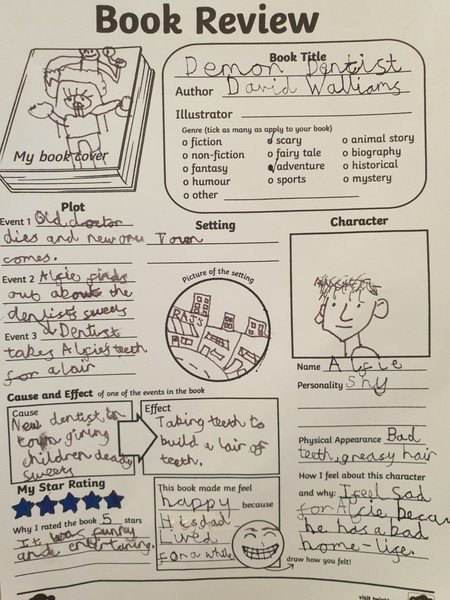 Book Review
Book Title
Demon Dentist
Author David Walliams
Illustrator
Genre (tick as many as apply to your book)
fiction
scary
animal story
non-fiction
fairy tale
biography
fantasy
adventure
historical
humour
sports
mystery
other
My book cover
Plot
Event 1 Old doctor
dies and new one
comes.
Event 2 Alfie finds
out about the
dentists sweets
Event 3 Dentist
takes Alfie's teeth
for a lair
Setting
Town
Picture of the setting
RAJ'S
Character
Name Alfie
Personality Shy
Physical Appearance Bad
teeth, greasy hair
How I feel about this character
and why: I feel sad
for Alfie becau
he has a bad
home-life.
Cause and Effect of one of the events in the book
Cause
New dentist in
town giving
children deadly
sweets
Effect
Taking teeth to
build a lair of
teeth.
My Star Rating
Why I rated the book 5 stars
It was funny
and entertaining.
This book made me feel
happy because
His dad
Lived
for a while
draw how you felt!
visit